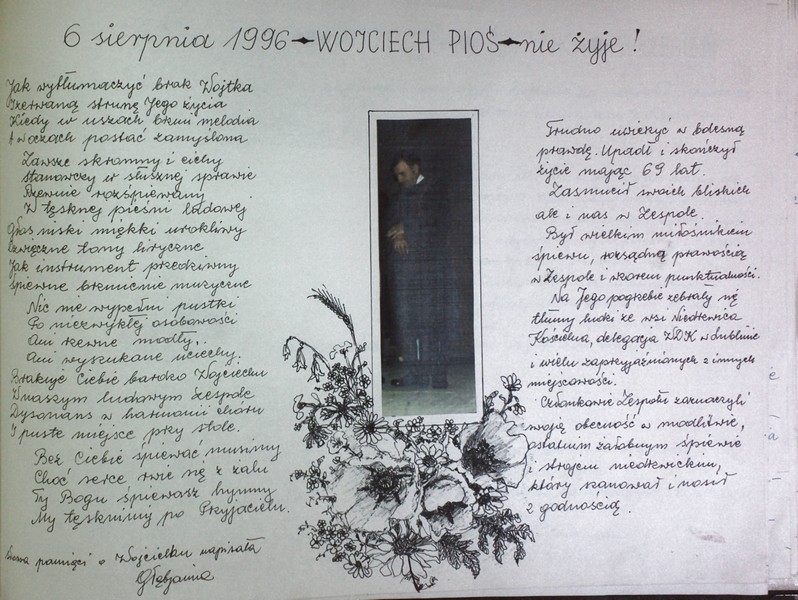 6 sierpnia 1996 - WOJCIECH PIOŚ - nie żyje!
Jak wytłumaczyć brak Wojtka
Przerwaną strunę Jego życia
Kiedy w uszach brzmi melodia
A w oczach postać zamyślona
Zawsze skromny i cichy
stanowczy w słusznej sprawie
Rzewnie rozśpiewany
W tęsknej pieśni ludowej
Głos niski miękki urokliwy
Dźwięczne tony liryczne
Jak instrument przedziwny
śpiewne brzmienie muzyczne
Nic nie wypełni pustki
Po niezwykłej osobowości
Ani rzewne modły,
Ani wyszukane uciechy.
Brakuje Ciebie bardzo Wojciechu
W naszym ludowym zespole
Dysonans w harmonii chóru
I puste miejsce przy stole.
Bez Ciebie śpiewać musimy
Choć serce rwie się z żalu
Ty Bogu śpiewasz hymny
My tęsknimy po Przyjacielu.
Słowa pamięci o Wojciechu napisała
Trudno uwierzyć w bolesną
prawdę. Upadł i skończył
życie mając 69 lat.
Zasmucił swoich bliskich
ale i nas w Zespole.
Był wielkim miłośnikiem
śpiewu, rozsądną prawością
w Zespole i wzorem punktualności.
Na Jego pogrzebie zebrały się
tłumy ludzi ze wsi Niedrzwica
Kościelna, delegacja WDK w Lublinie
i wielu zaprzyjaźnionych z innych
miejscowości.
Członkowie Zespołu zaznaczyli
swoją obecność w modlitwie,
ostatnim żałobnym śpiewie
i strojem niedrzwickim,
który szanował i nosił
z godnością.